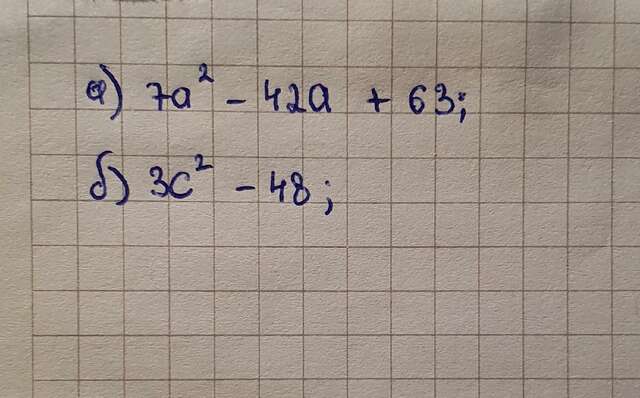 а) 7a² - 42a + 63;
б) 3c² - 48;